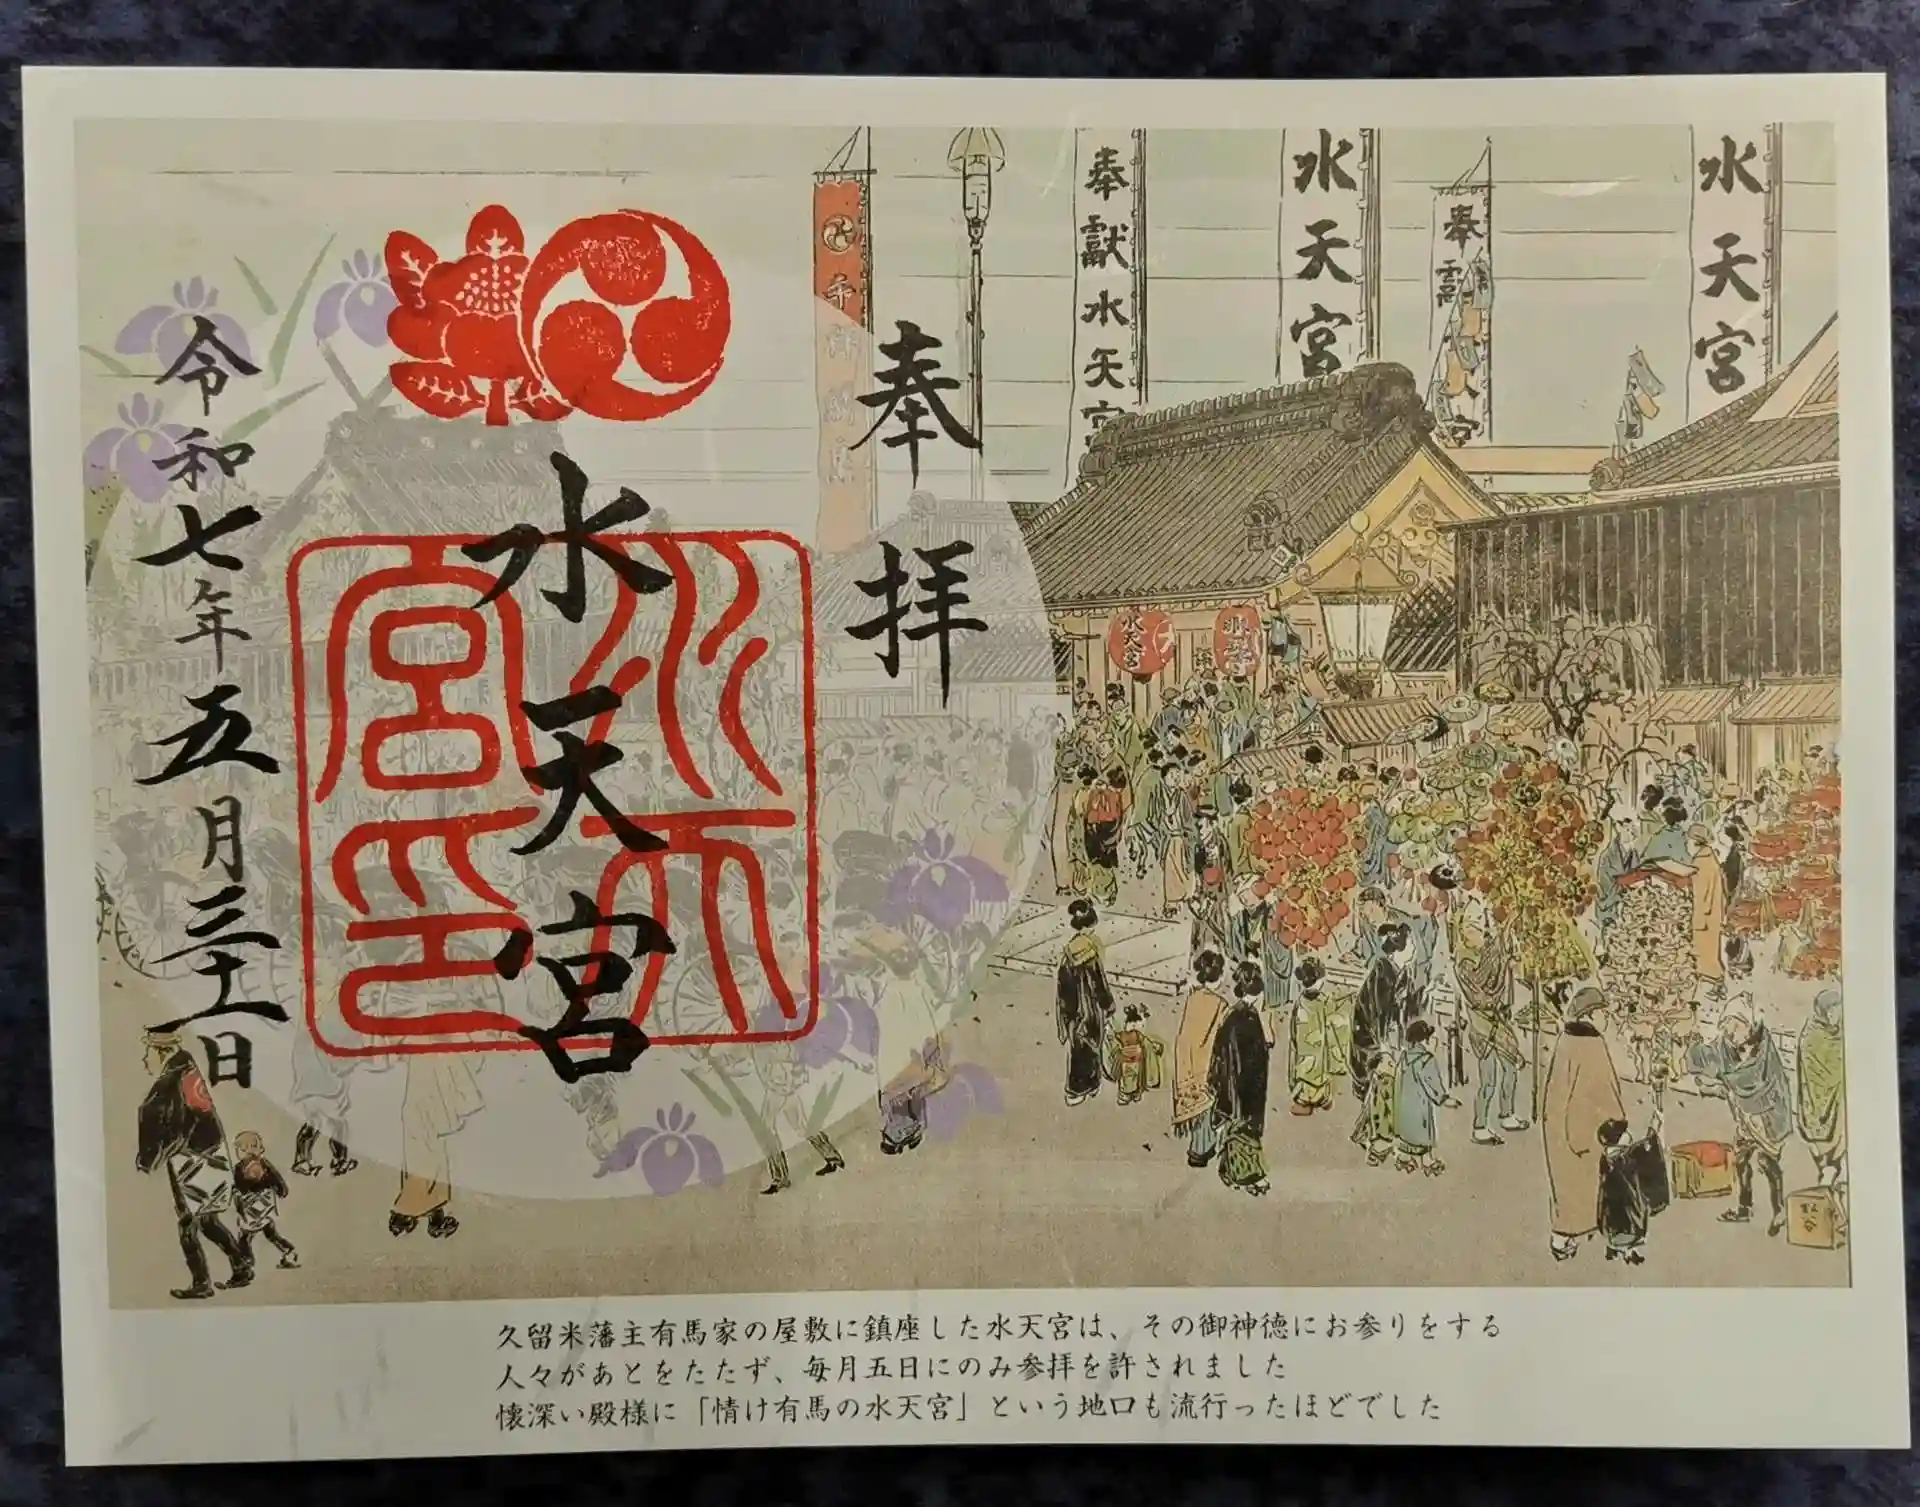 水天宮
奉
水天宮
奉獻水天宮
水天宮
奉拝
水天宮
水天宮印
令和七年五月三十一日
久留米藩主有馬家の屋敷に鎮座した水天宮は、その御神徳にお参りをする
人々があとをたたず、毎月五日にのみ参拝を許されました
懐深い殿様に「情け有馬の水天宮」という地口も流行ったほどでした